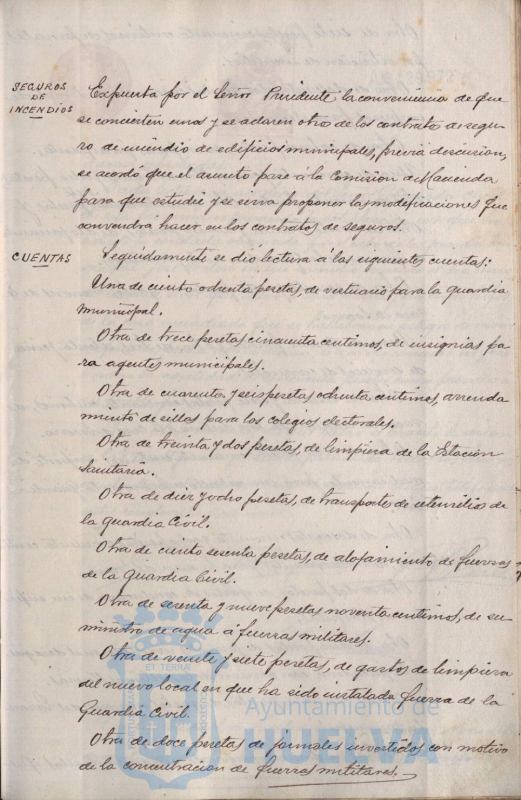 SEGUROS
DE
INCENDIOS
Expuesta por el Señor Presidente la conveniencia de que
se concierten unos y se aclaren otros de los contratos de segu
ro de incendio de edificios municipales, previa discusion,
se acordó que el asunto pase á la Comision de Hacienda
para que estudie y se sirva proponer las modificaciones que
convendrá hacer en los contratos de seguros.
CUENTAS
Seguidamente se dió lectura á las siguientes cuentas:
Una de ciento ochenta pesetas, de vestuario para la guardia
municipal.
Otra de trece pesetas cincuenta centimos, de insignias pa
ra agentes municipales.
Otra de cuarenta y seis pesetas ochenta centimos, arrenda
miento de sillas para los colegios electorales.
Otra de treinta y dos pesetas, de limpieza de la Estación
Sanitaria.
Otra de diez y ocho pesetas, de transporte de utensilios de
la guardia Civil.
Otra de ciento sesenta pesetas, de alojamiento de fuerzas
de la Guardia Civil.
Otra de sesenta y nueve pesetas noventa centimos, de su
ministro de agua á fuerzas militares.
Otra de veinte y siete pesetas, de gastos de limpieza
del nuevo local en que ha sido instalada fuerza de la
Guardia Civil.
Otra de doce pesetas de jornales invertidos con motivo
de la concentracion de fuerzas militares.
ET TERRA
Ayuntamiento de
HUELVA